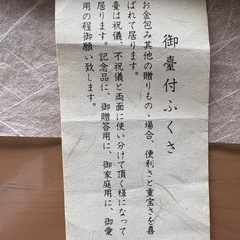 御臺付ふくさ
お金包み其他の贈りものゝ場合、便利さと重宝さを喜
ばれて居ります。
臺は祝儀、不祝儀と両面に使い分けて頂く様になって
居ります。記念品に、御贈答用に、御家庭用に、御愛
用の程御願い致します。